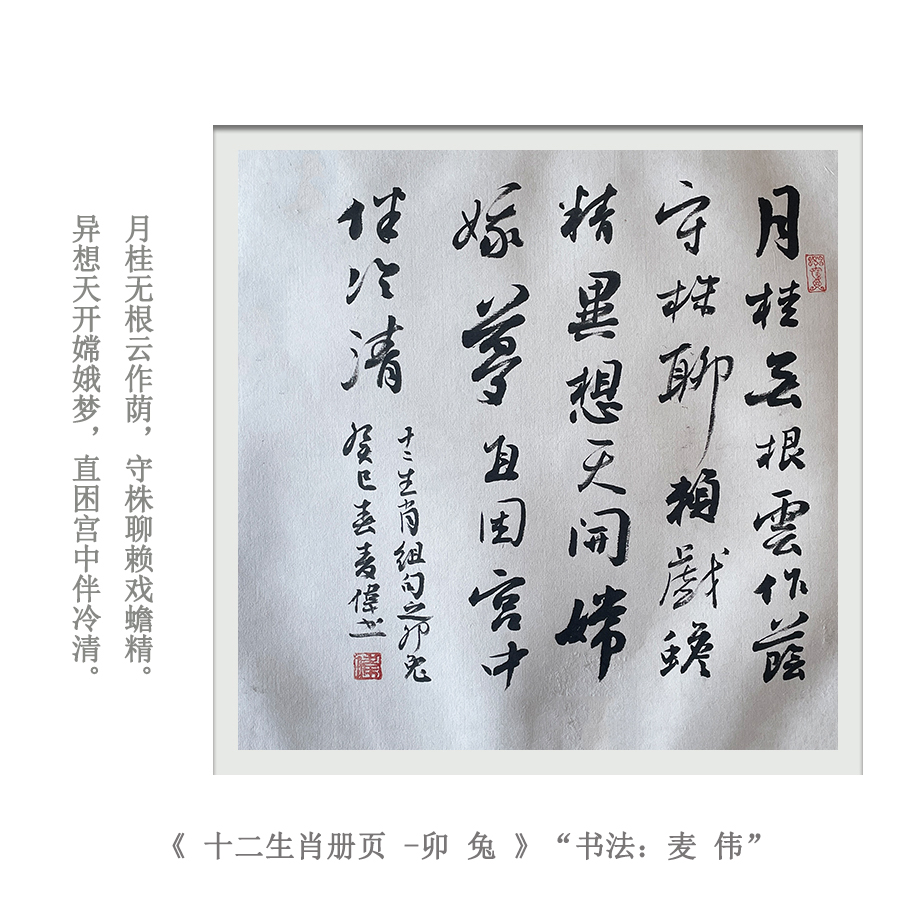 月桂无根雲作蔭
守株聊賴戲蟾
精異想天開嫦
娥夢直困宮中
伴冷清
十二生肖組句之卯兔
癸巳春麦偉书
月桂无根云作荫，守株聊赖戏蟾精。
异想天开嫦娥梦，直困宫中伴冷清。
《 十二生肖册页 -卯 兔 》“书法：麦 伟”